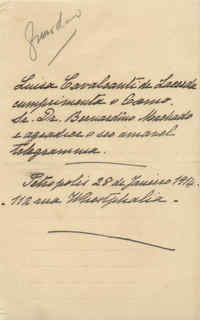 Guardar
Luiza Cavalcanti de Lacerda
cumprimenta o Exmo.
Sr. Dr. Bernardino Machado
e agradece o seo amavel
telegramma.
Petropolis 28 de Janeiro 1914.
-112 rua Westphalia-